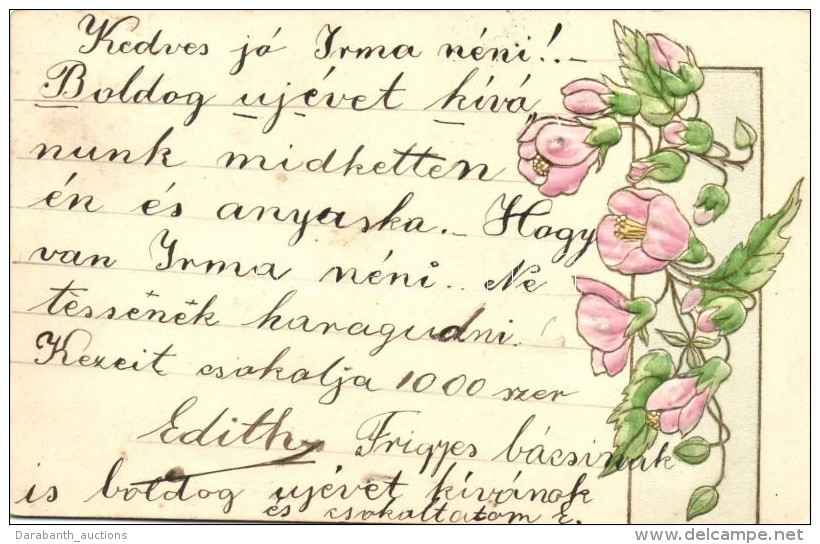 Kedves jó Irma néni!.-
Boldog ujévet kívá„
nunk midketten
én és anyaska.- Hogy
van Irma néni.. Ne
tessenek haragudni.
Kezeit csokolja 1000 szer
Edith Frigyes bácsinak
is boldog ujévet kívánok
és csokoltatom
Darabanth_auctions
www.delcampe.net